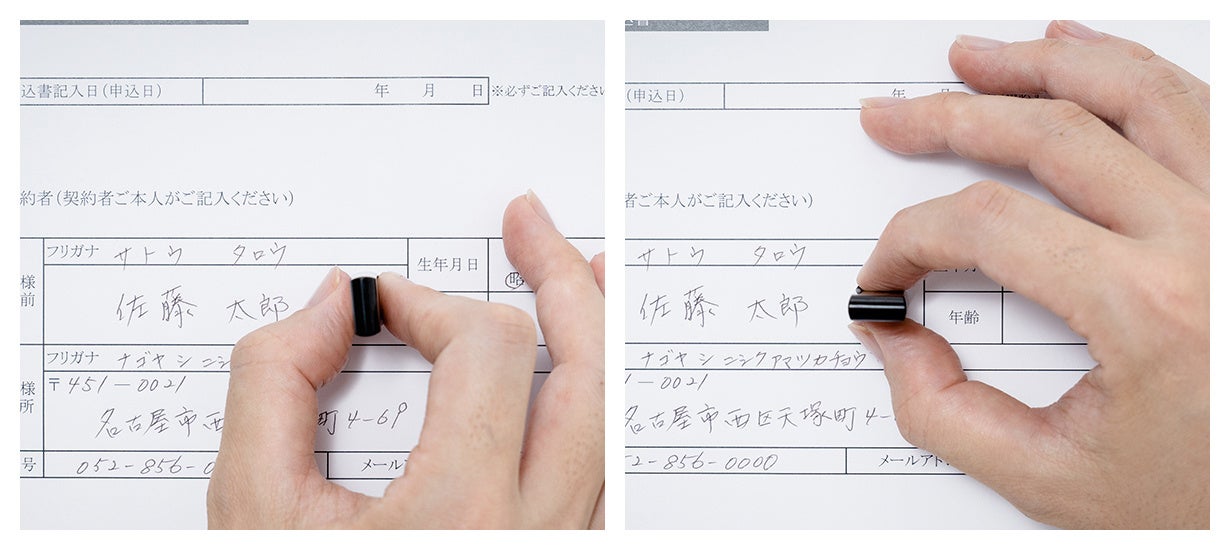 込書記入日(申込日)
年 月 日
※必ずご記入くださ
約者(契約者ご本人がご記入ください)
フリガナ サトウ タロウ
生年月日
様
前
佐藤 太郎
フリガナ ナゴヤ シ ニシ
様
所
〒451-0021
名古屋市西
町4-69
号
052-856-0
メール
(申込日)
年 月
者ご本人がご記入ください)
サトウ タロウ
佐藤 太郎
年齢
ナゴヤ シ ニシクアマツカチョウ
1-0021
名古屋市西区天塚町4-
52-856-0000
メールアド